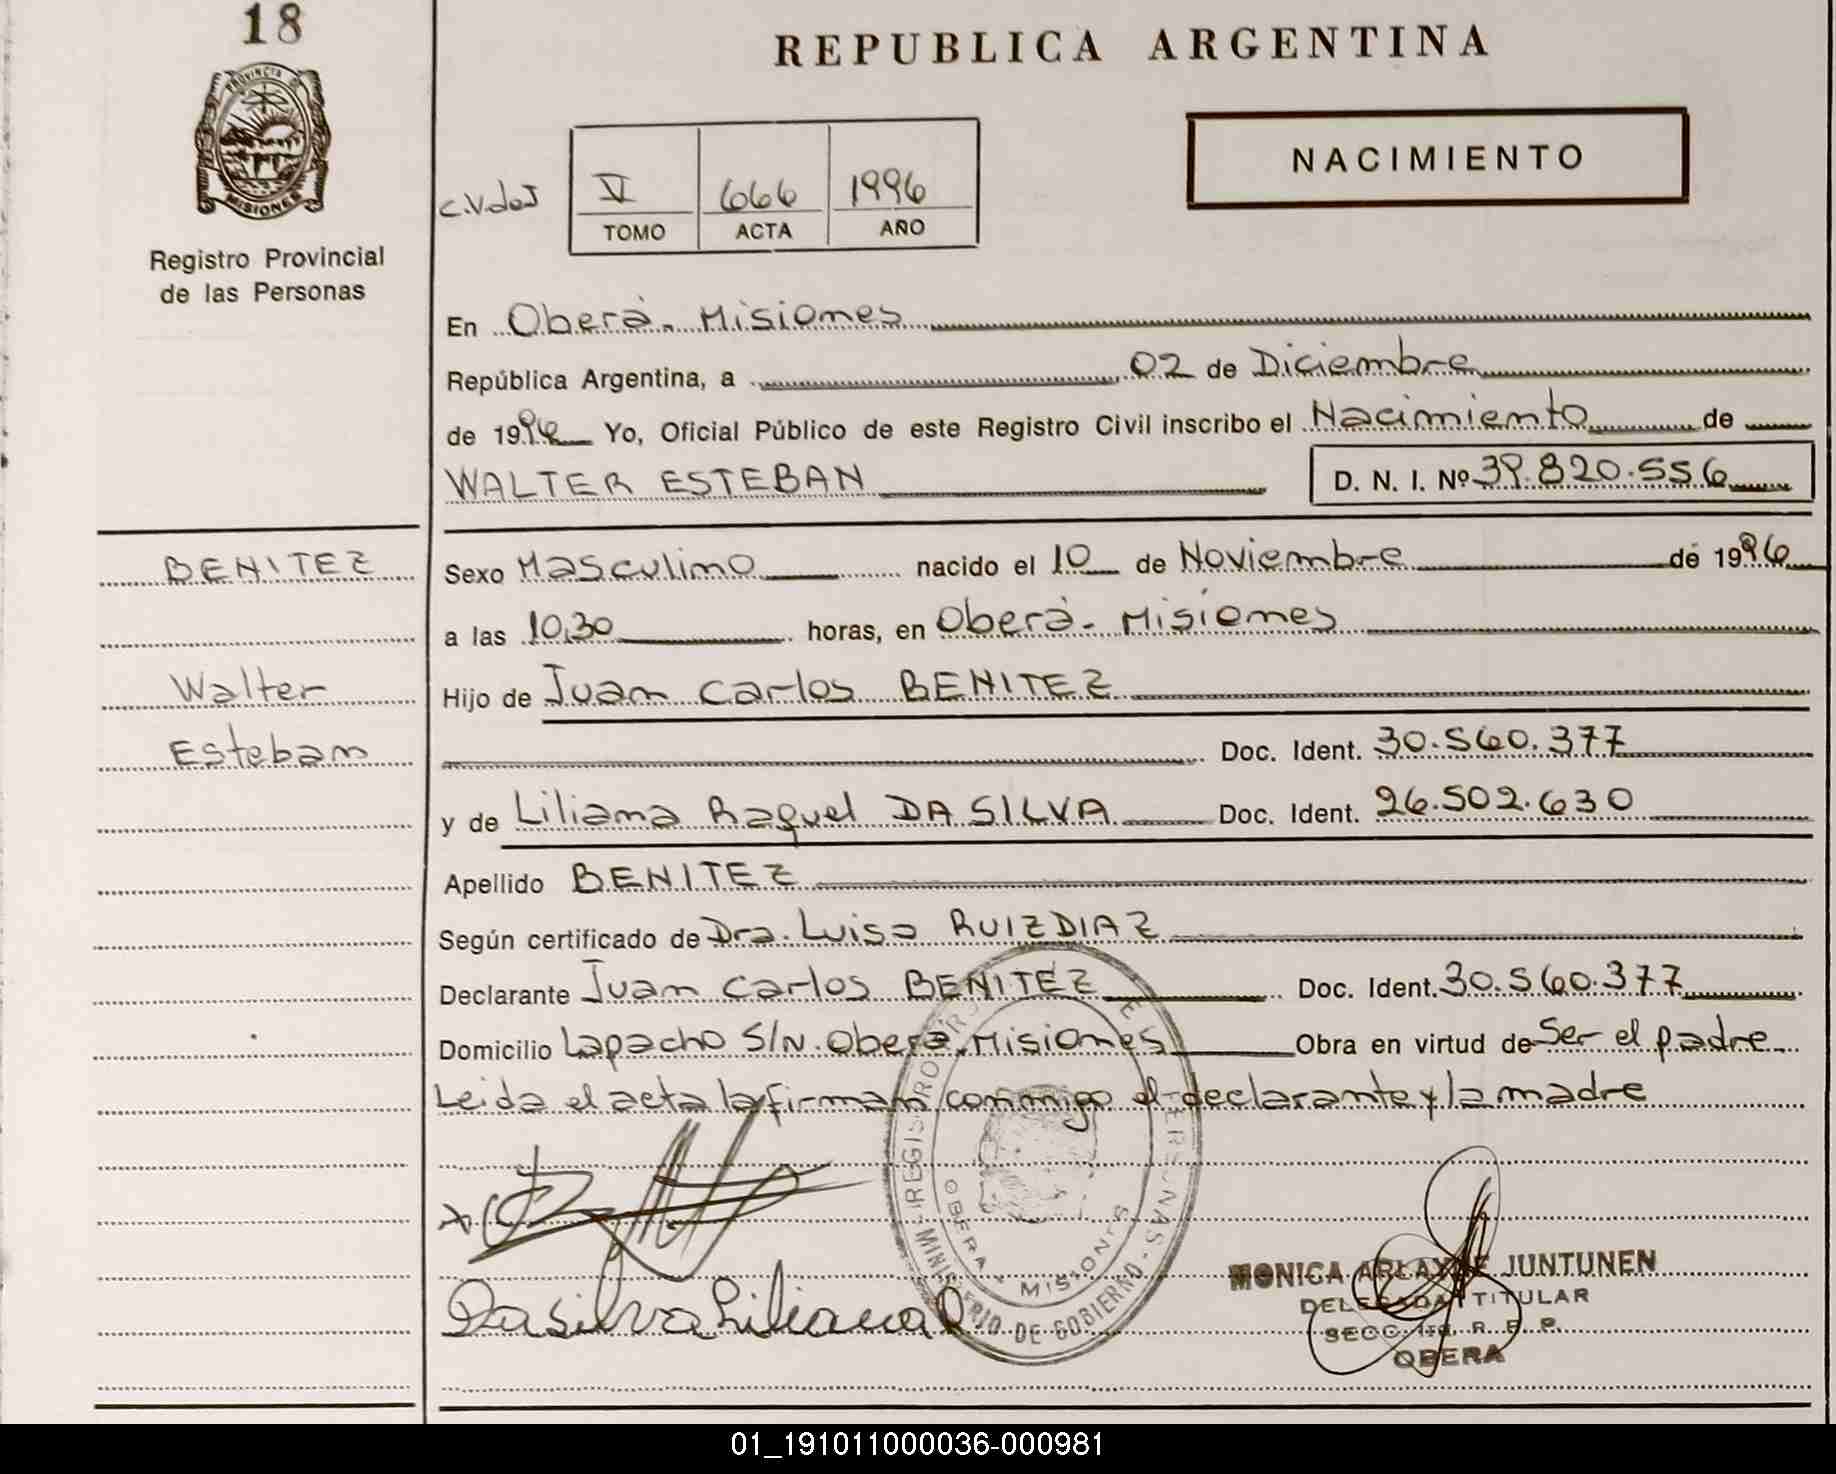 18
PROVINCIA DE
MISIONES
Registro Provincial
de las Personas
REPUBLICA ARGENTINA
NACIMIENTO
C.V.deJ
V 666 1996
TOMO ACTA AÑO
En Oberá. Misiones
República Argentina, a 02 de Diciembre
de 1996 Yo, Oficial Público de este Registro Civil inscribo el Nacimiento de
WALTER ESTEBAN D. N. I. Nº 39.820.556
BENITEZ
Walter
Esteban
Sexo Masculino nacido el 10 de Noviembre de 1996
a las 10,30 horas, en Oberá. Misiones
Hijo de Juan Carlos BENITEZ
Doc. Ident. 30.560.377
y de Liliana Raquel DA SILVA Doc. Ident. 26.502.630
Apellido BENITEZ
Según certificado de Dra. Luisa RUIZ DIAZ
Declarante Juan Carlos BENITEZ Doc. Ident. 30.560.377
Domicilio Lapacho S/N. Oberá. Misiones Obra en virtud de Ser el padre.
Leida el acta la firman conmigo el declarante y la madre
Da silva Liliana R.
OBERA MISIONES
MINISTERIO DE GOBIERNO
MONICA ARLAYNE JUNTUNEN
DELEGADA TITULAR
SECC. R. P. P.
OBERA
01_191011000036-000981